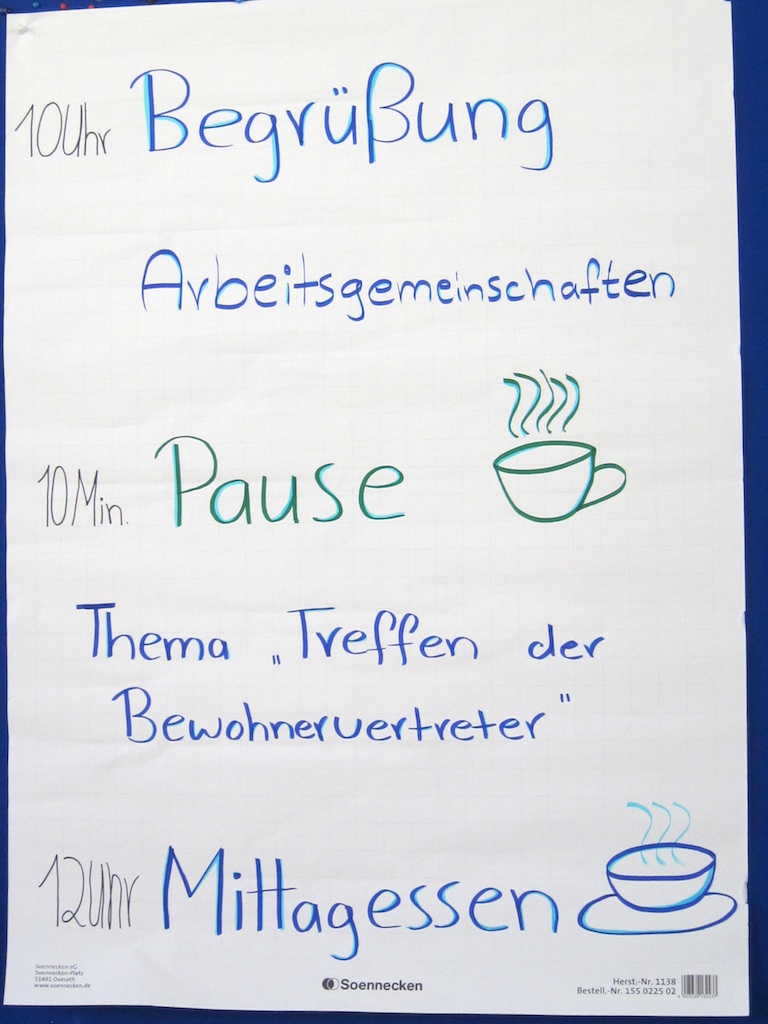 10 Uhr Begrüßung
Arbeitsgemeinschaften
10 Min. Pause
Thema „Treffen der
Bewohnervertreter"
12 Uhr Mittagessen
Soennecken eG
Soennecken-Platz
51491 Overath
www.soennecken.de
Soennecken
Herst.-Nr. 1138
Bestell.-Nr. 155 0225 02